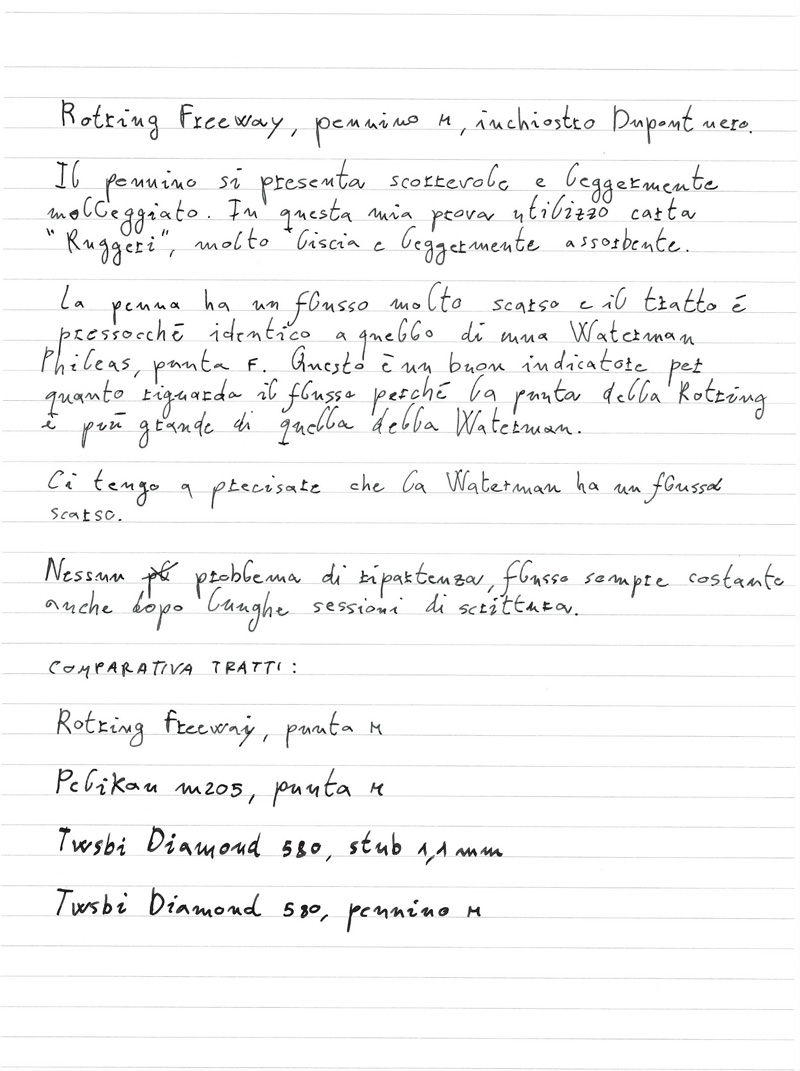 Rotring Freeway, pennino M, inchiostro Dupont nero.
Il pennino si presenta scorrevole e leggermente
molleggiato. In questa mia prova utilizzo carta
"Ruggeri", molto liscia e leggermente assorbente.
La penna ha un flusso molto scarso e il tratto è
pressocché identico a quello di una Waterman
Phileas, punta F. Questo è un buon indicatore per
quanto riguarda il flusso perché la punta della Rotring
è più grande di quella della Waterman.
Ci tengo a precisare che la Waterman ha un flusso
scarso.
Nessun problema di ripartenza, flusso sempre costante
anche dopo lunghe sessioni di scrittura.
COMPARATIVA TRATTI:
Rotring Freeway, punta M
Pelikan m205, punta M
Twsbi Diamond 580, stub 1,1 mm
Twsbi Diamond 580, pennino M